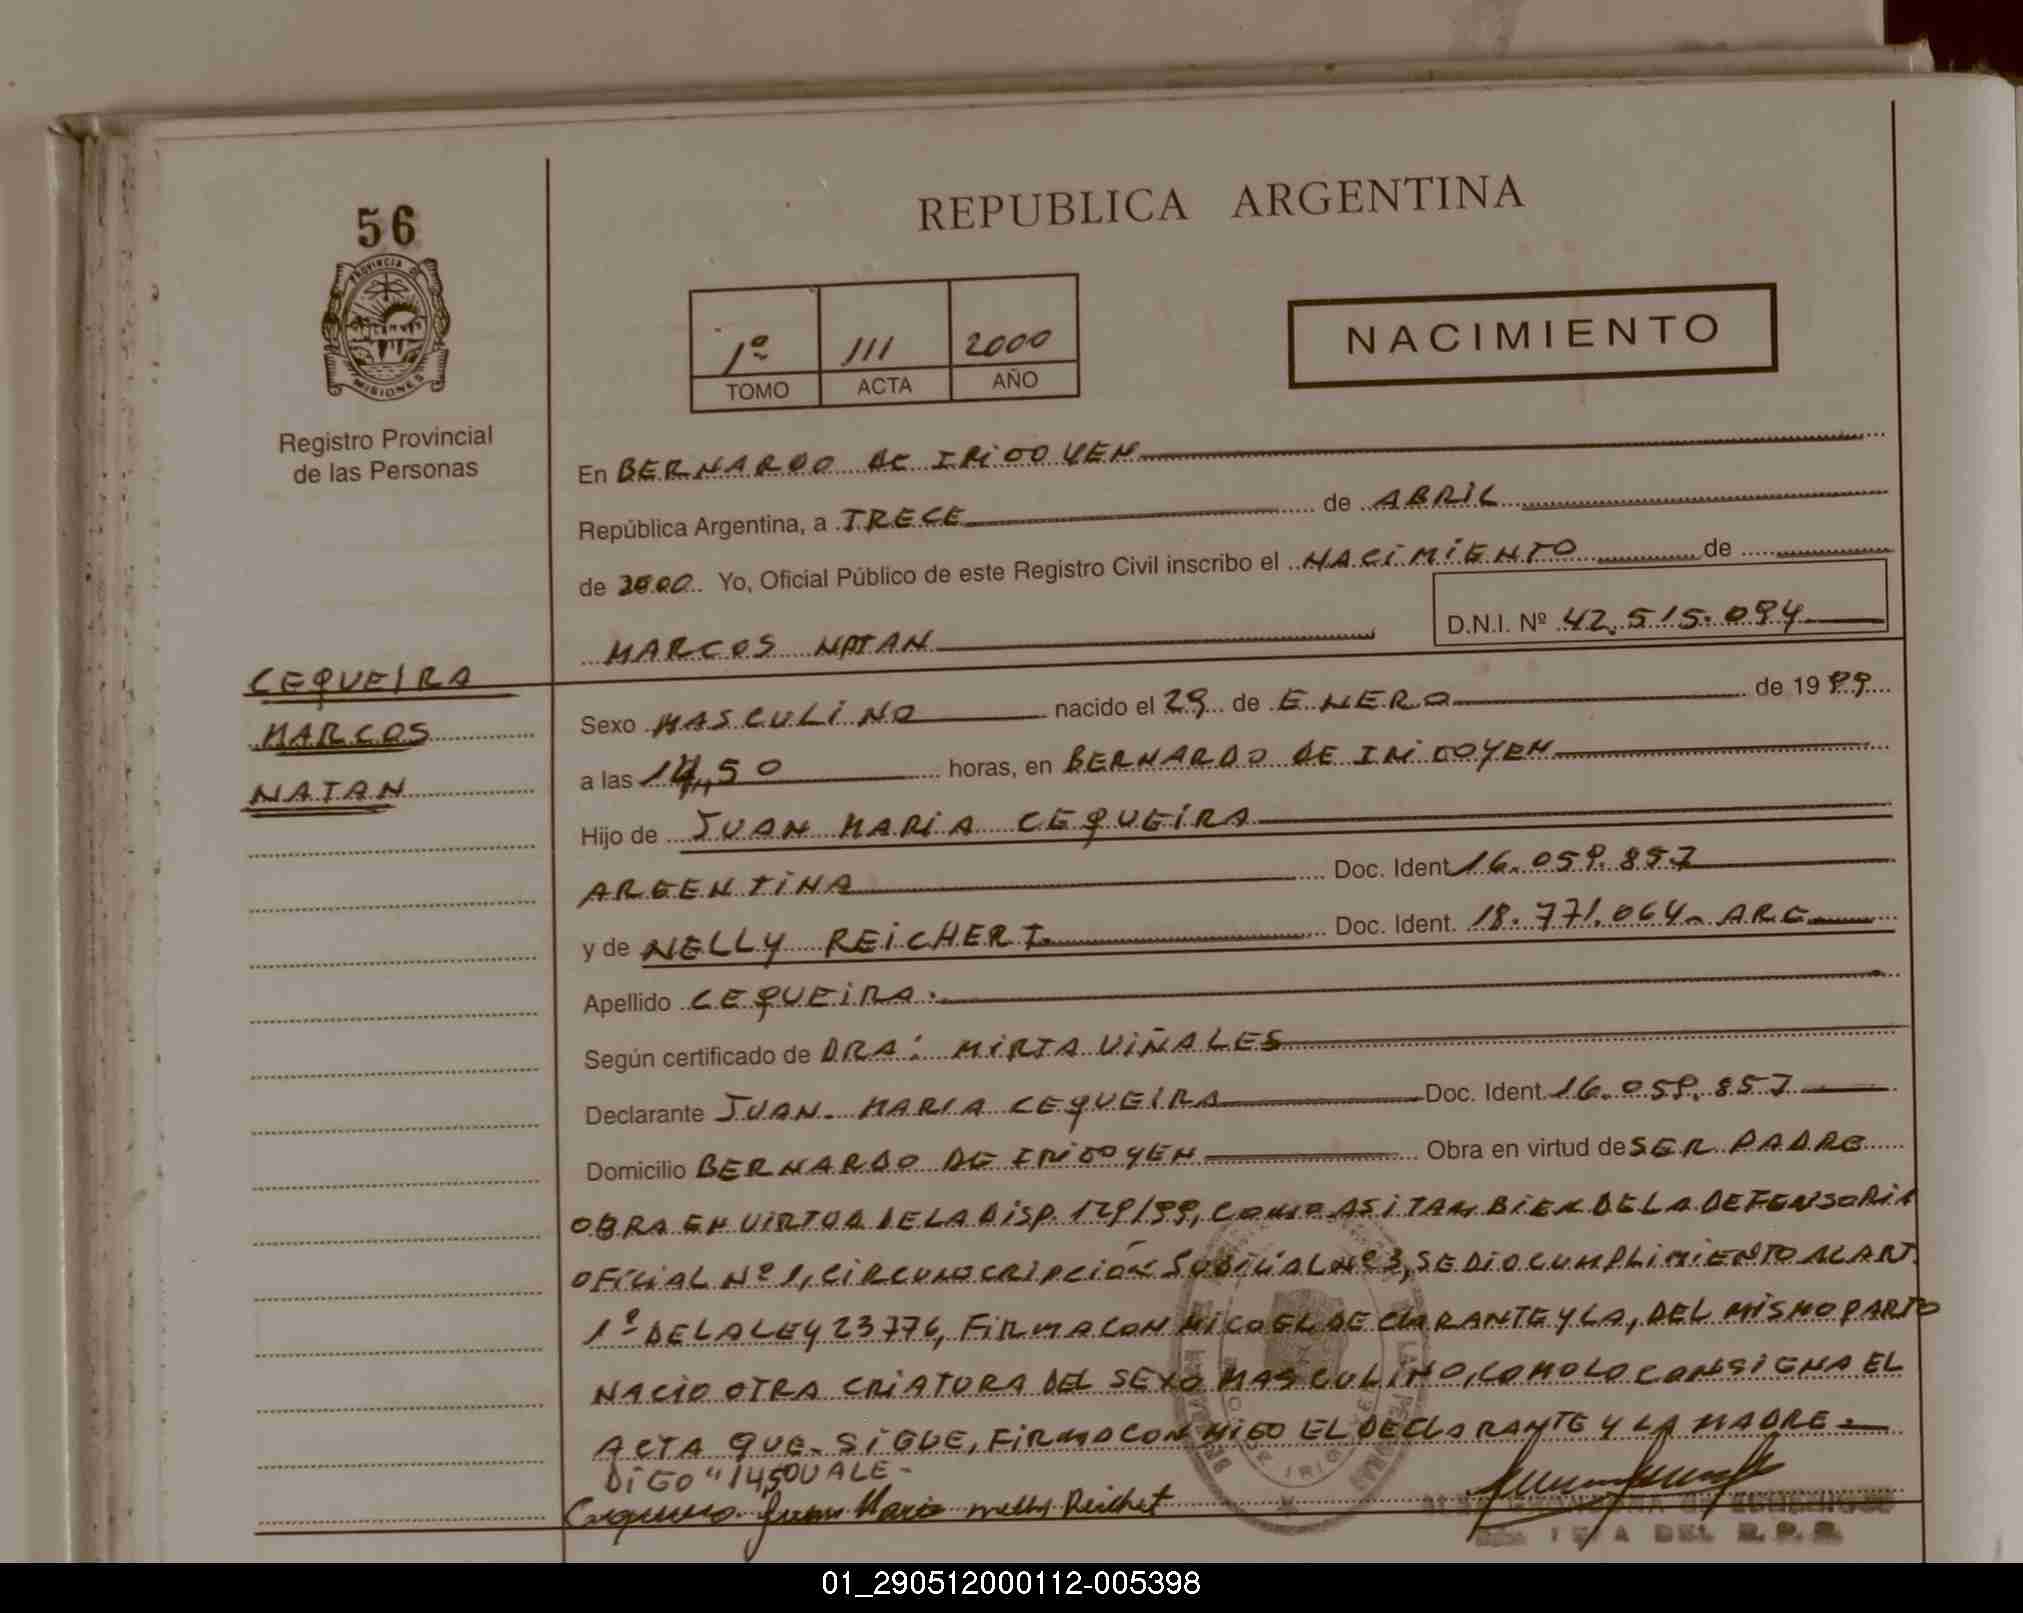 56
PROVINCIA DE
MISIONES
Registro Provincial
de las Personas
REPUBLICA ARGENTINA
1º 111 2000
TOMO ACTA AÑO
NACIMIENTO
En BERNARDO DE IRIGOYEN
República Argentina, a TRECE de ABRIL
de 2000 Yo, Oficial Público de este Registro Civil inscribo el NACIMIENTO de
MARCOS NATAN D.N.I. Nº 42.515.094
CEQUEIRA
MARCOS
NATAN
Sexo MASCULINO nacido el 29 de ENERO de 1999
a las 14,50 horas, en BERNARDO DE IRIGOYEN
Hijo de JUAN MARIA CEQUEIRA
ARGENTINA Doc. Ident. 16.059.857
y de NELLY REICHERT. Doc. Ident. 18.771.064- ARG
Apellido CEQUEIRA.
Según certificado de DRA: MIRTA VIÑALES
Declarante JUAN MARIA CEQUEIRA Doc. Ident. 16.059.857
Domicilio BERNARDO DE IRIGOYEN Obra en virtud de SER PADRE
OBRA EN VIRTUD DE LA DISP. 129/99, COMO ASI TAMBIEN DE LA DEFENSORIA
OFICIAL Nº 1, CIRCUNSCRIPCIÓN JUDICIAL Nº 3, SE DIO CUMPLIMIENTO AL ART.
1º DE LA LEY 23776, FIRMA CON MIGO EL DECLARANTE Y LA, DEL MISMO PARTO
NACIO OTRA CRIATURA DEL SEXO MASCULINO, COMO LO CONSIGNA EL
ACTA QUE SIGUE, FIRMA CON MIGO EL DECLARANTE Y LA MADRE.
DIGO "14,50 VALE-
Cequeira Juan Maria nelly Reichet
DEL R.P.P.
01_290512000112-005398